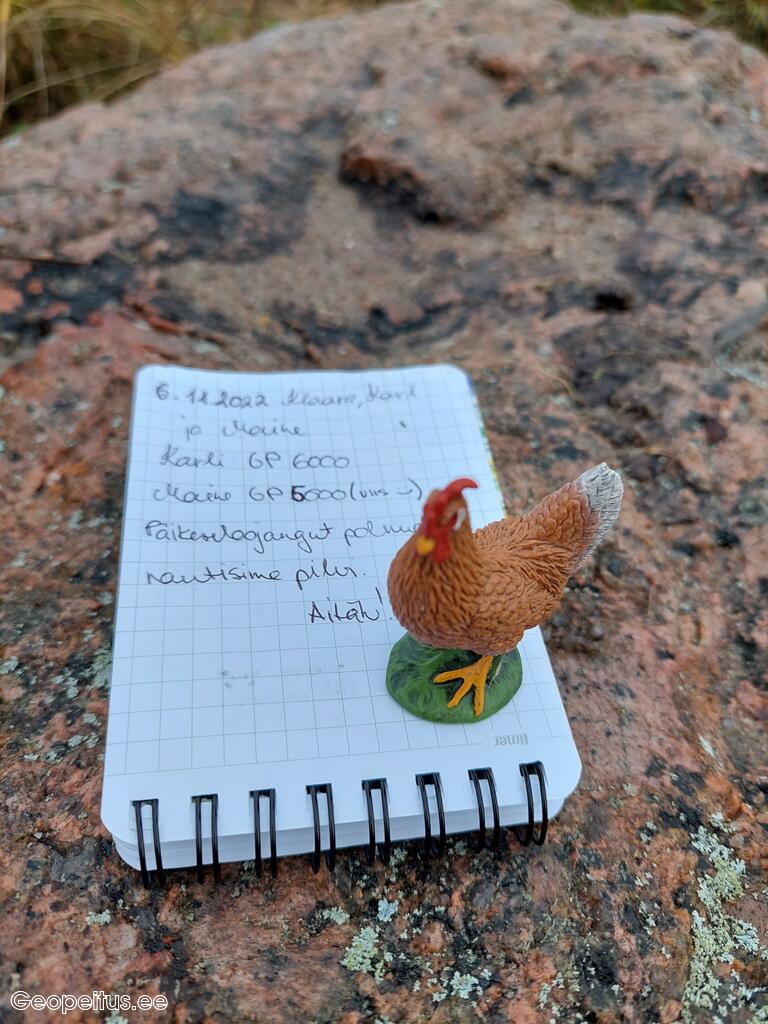 6.11.2022 Klaara, Karl
ja Maine
Karli GP 6000
Maine GP 5000 (viis :-)
Päikeseloojangut polnud
nautisime pilvi.
Aitäh!
timer
Geopeitus.ee